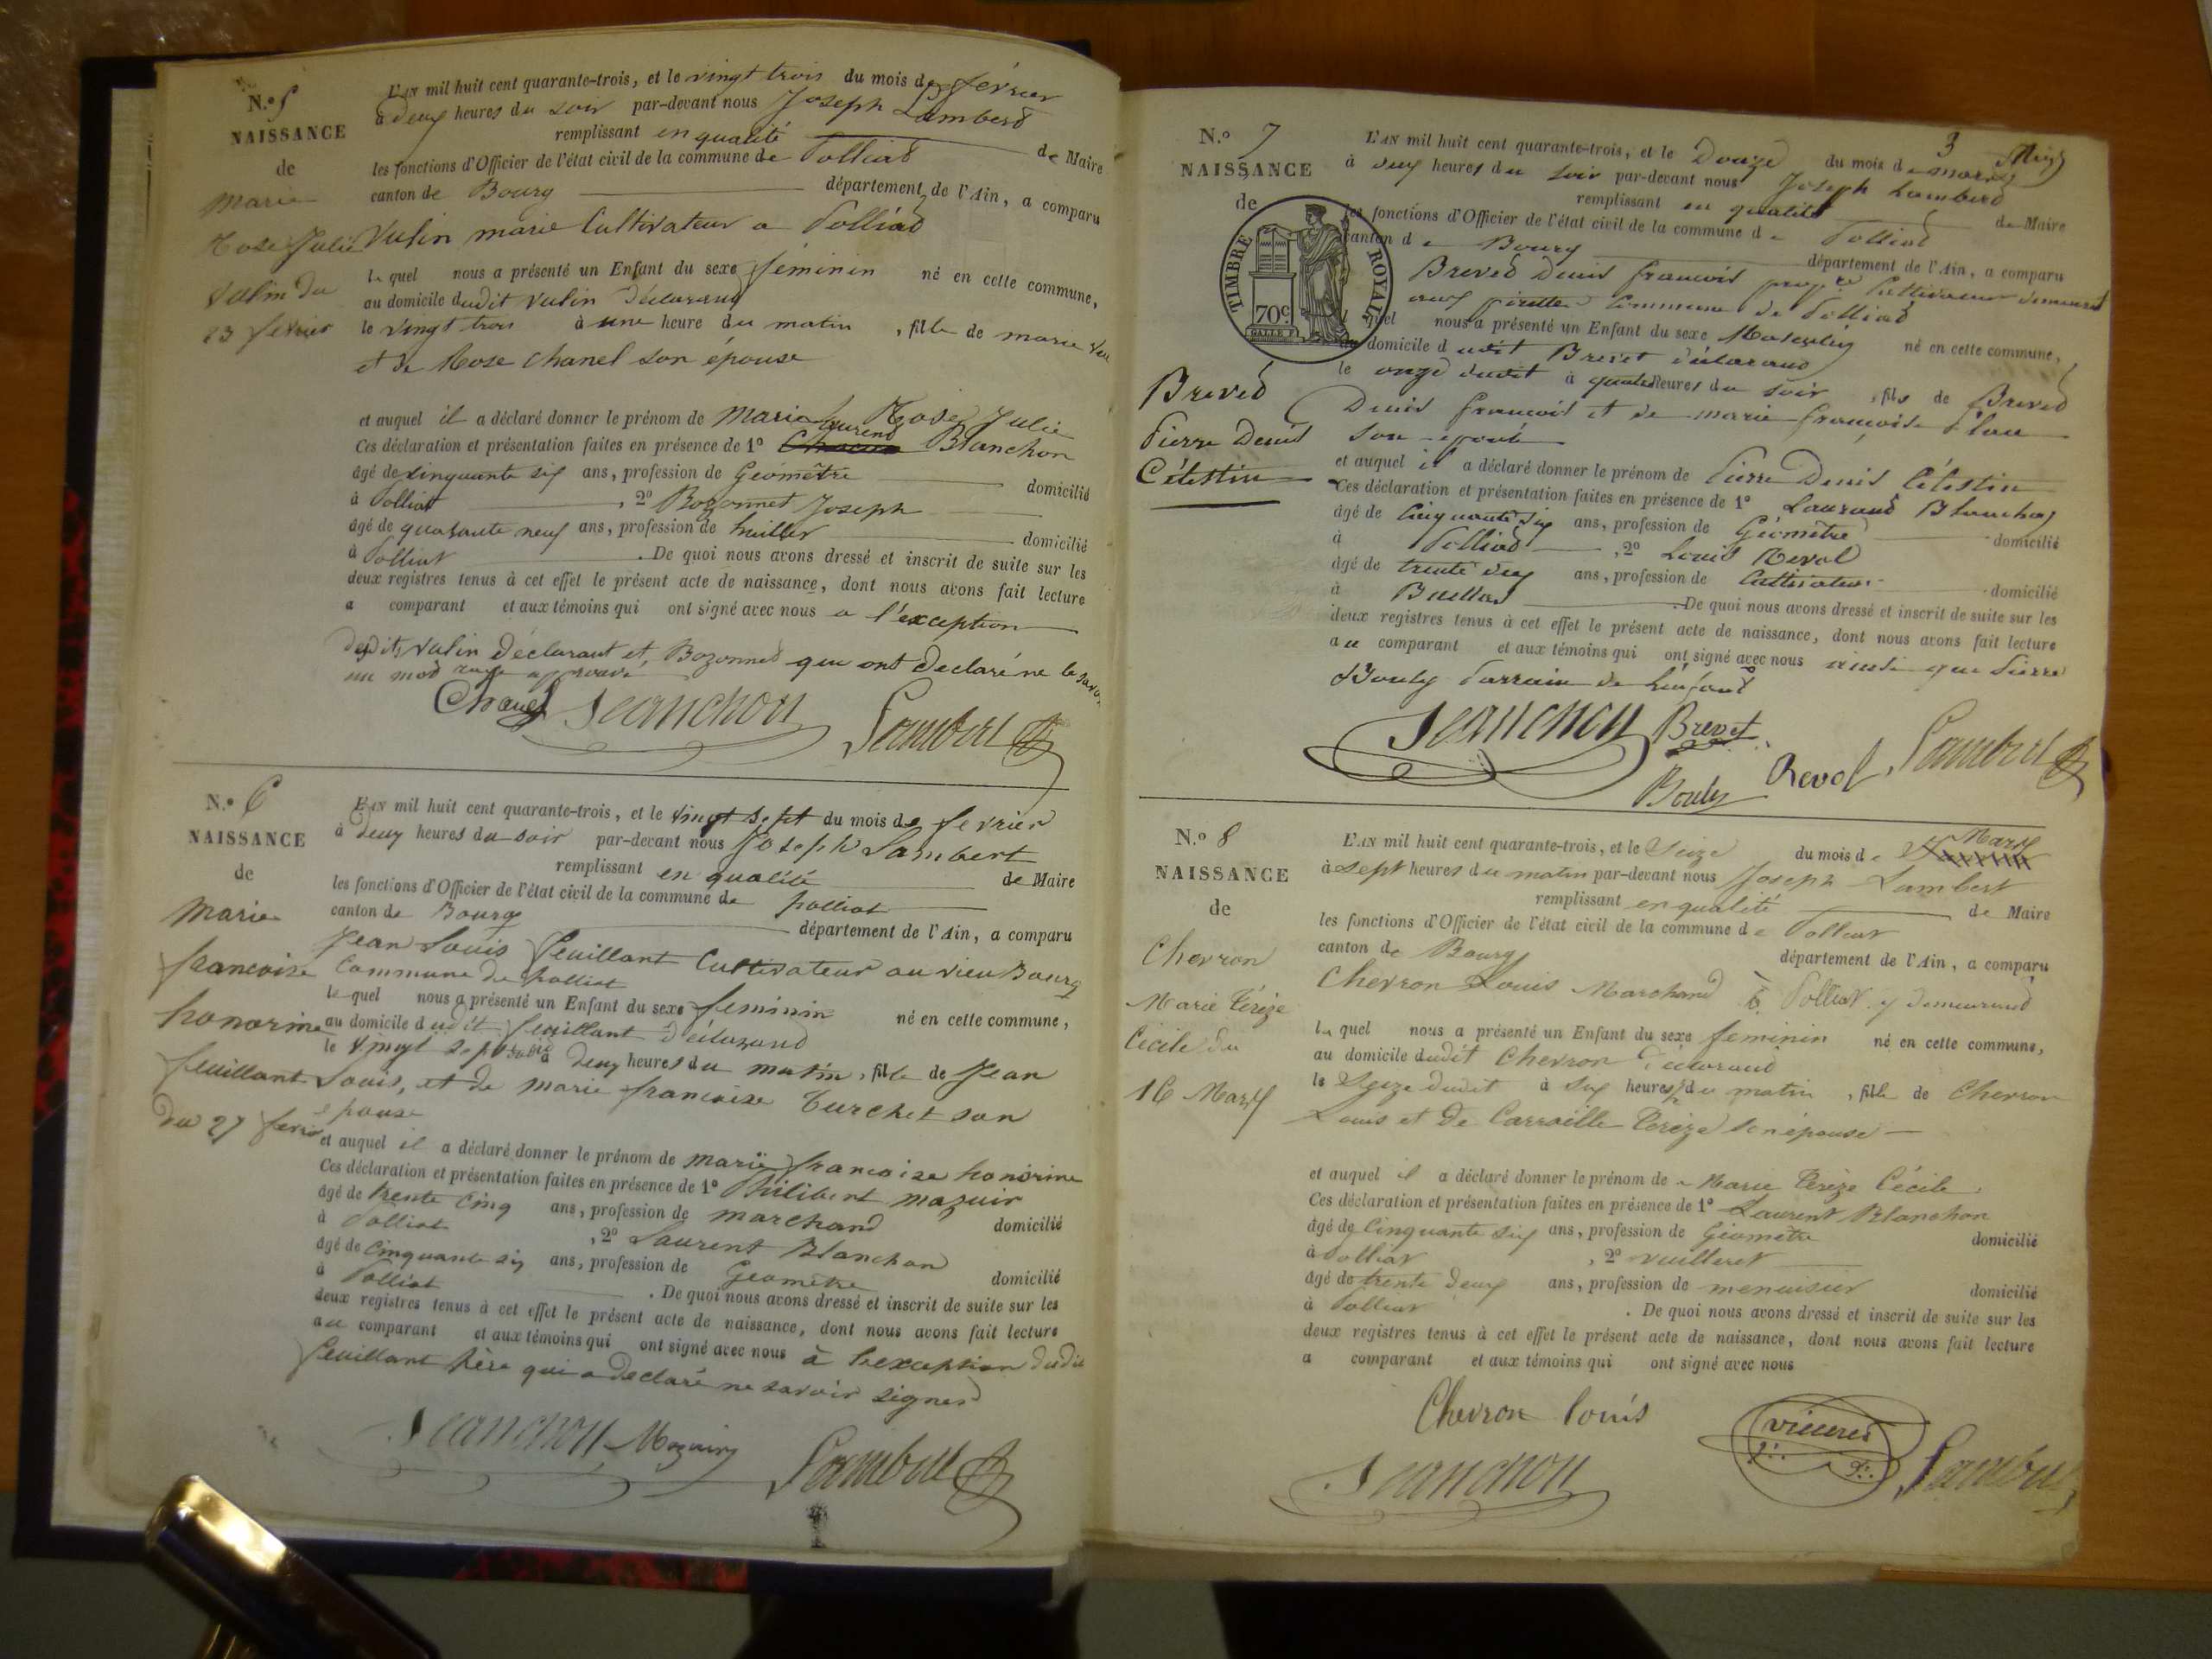 N.º 5
NAISSANCE
de
Marie
Rose Julie
Vulin du
23 fevrier
L'AN mil huit cent quarante-trois, et le vingt trois du mois de février
à deux heures du soir par-devant nous Joseph Lambert
remplissant en qualité de Maire
les fonctions d'Officier de l'état civil de la commune de Polliat
canton de Bourg département de l'Ain, a comparu
Vulin marie Cultivateur a Polliat
le quel nous a présenté un Enfant du sexe féminin né en cette commune,
au domicile dudit Vulin déclarant
le vingt trois à une heure du matin, fille de marie
et de Rose Chanel son épouse
et auquel il a déclaré donner le prénom de Marie Rose Julie
Laurent
Ces déclaration et présentation faites en présence de 1º Blanchon
âgé de cinquante six ans, profession de Géomètre domicilié
à Polliat, 2º Bozonnet Joseph
âgé de quarante neuf ans, profession de huillier domicilié
à Polliat. De quoi nous avons dressé et inscrit de suite sur les
deux registres tenus à cet effet le présent acte de naissance, dont nous avons fait lecture
a comparant et aux témoins qui ont signé avec nous a l'exception
dudit Vulin déclarant et Bozonnet qui ont declaré ne le savoir
un mot rayé approuvé
Chanel Blanchon Lambert
N.º 6
NAISSANCE
de
Marie
francoise
honorine
feuillant
du 27 fevrier
L'AN mil huit cent quarante-trois, et le vingt sept du mois de fevrier
à deux heures du soir par-devant nous Joseph Lambert
remplissant en qualité de Maire
les fonctions d'Officier de l'état civil de la commune de polliat
canton de Bourg département de l'Ain, a comparu
Jean Louis feuillant Cultivateur au vieu Bourg
Commune de polliat
le quel nous a présenté un Enfant du sexe feminin né en cette commune,
au domicile dudit feuillant déclarant
le vingt sept à deux heures du matin, fille de Jean
Louis, et de marie francoise Curchet son
epouse
et auquel il a déclaré donner le prénom de marie francoise honorine
Ces déclaration et présentation faites en présence de 1º Philibert mazuir
âgé de trente cinq ans, profession de marchand domicilié
à Polliat, 2º Laurent Blanchon
âgé de cinquante six ans, profession de Geometre domicilié
à Polliat. De quoi nous avons dressé et inscrit de suite sur les
deux registres tenus à cet effet le présent acte de naissance, dont nous avons fait lecture
au comparant et aux témoins qui ont signé avec nous à l'exception dudit
feuillant père qui a declaré ne savoir signer
Blanchon Mazuir Lambert
3
N.º 7
NAISSANCE
de
TIMBRE ROYAL
70c.
Brevet
Pierre Denis
Célestin
L'AN mil huit cent quarante-trois, et le Douze du mois de mars
à six heures du soir par-devant nous Joseph Lambert
remplissant en qualité de Maire
les fonctions d'Officier de l'état civil de la commune de Polliat
canton de Bourg département de l'Ain, a comparu
Brevet Denis francois prop.re Cultivateur demeurant
aux commune de Polliat
l quel nous a présenté un Enfant du sexe Masculin né en cette commune,
au domicile dudit Brevet déclarant
le onze dudit à quatre heures du soir, fils de Brevet
Denis francois et de marie francoise
son epouse
et auquel il a déclaré donner le prénom de Pierre Denis Célestin
Ces déclaration et présentation faites en présence de 1º Laurent Blanchon
âgé de Cinquante six ans, profession de Géomètre domicilié
à Polliat, 2º Louis Revol
âgé de trente six ans, profession de Cultivateur domicilié
à Buellas. De quoi nous avons dressé et inscrit de suite sur les
deux registres tenus à cet effet le présent acte de naissance, dont nous avons fait lecture
au comparant et aux témoins qui ont signé avec nous ainsi que Pierre
Bouly Parrain de l'enfant
Blanchon Brevet
Bouly Revol Lambert
N.º 8
NAISSANCE
de
Chevron
Marie Tereze
Cécile du
16 Mars
L'AN mil huit cent quarante-trois, et le Seize du mois de Mars
à sept heures du matin par-devant nous Joseph Lambert
remplissant en qualité de Maire
les fonctions d'Officier de l'état civil de la commune de Polliat
canton de Bourg département de l'Ain, a comparu
Chevron Louis Marchand à Polliat y demeurand
le quel nous a présenté un Enfant du sexe feminin né en cette commune,
au domicile dudit Chevron déclarant
le Seize dudit à six heures du matin, fille de Chevron
Louis et de Carraille Tereze son épouse
et auquel il a déclaré donner le prénom de Marie Tereze Cécile
Ces déclaration et présentation faites en présence de 1º Laurent Blanchon
âgé de Cinquante six ans, profession de Géometre domicilié
à Polliat, 2º vuilleret
âgé de trente deux ans, profession de menuisier domicilié
à Polliat. De quoi nous avons dressé et inscrit de suite sur les
deux registres tenus à cet effet le présent acte de naissance, dont nous avons fait lecture
a comparant et aux témoins qui ont signé avec nous
Chevron louis
Blanchon Lambert